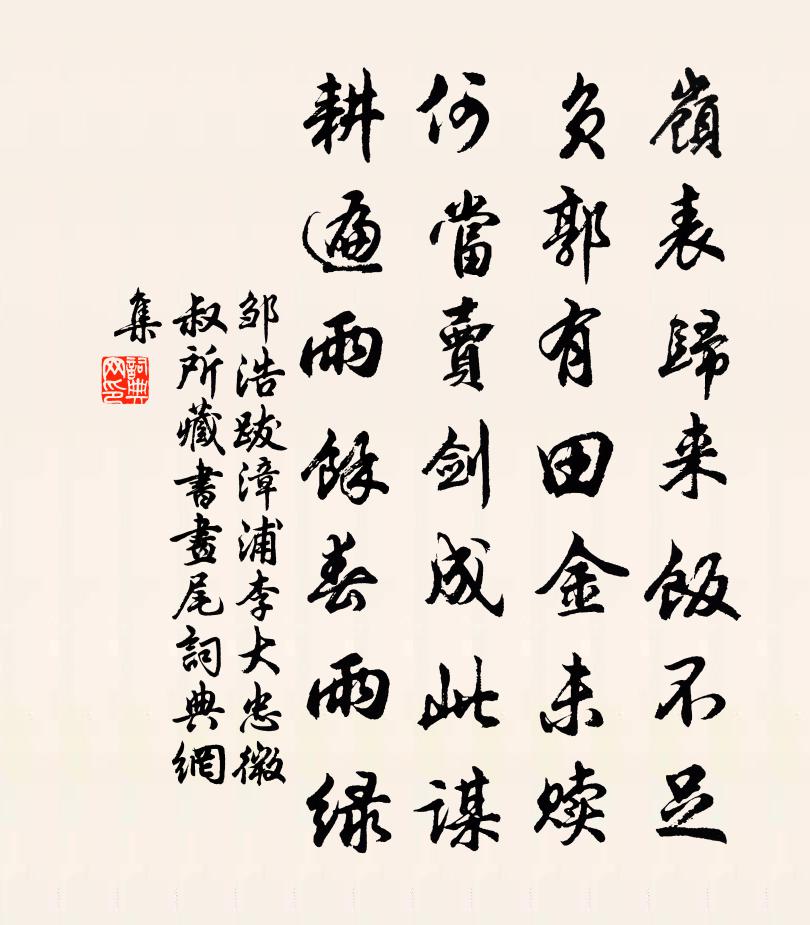 嶺表歸来飯不足
负郭有田金未赎
何當賣劍成此謀
耕遍雨餘春雨绿
邹浩跋漳浦李大忠微
叔所藏書畫尾詞典網
集
詞典
网印